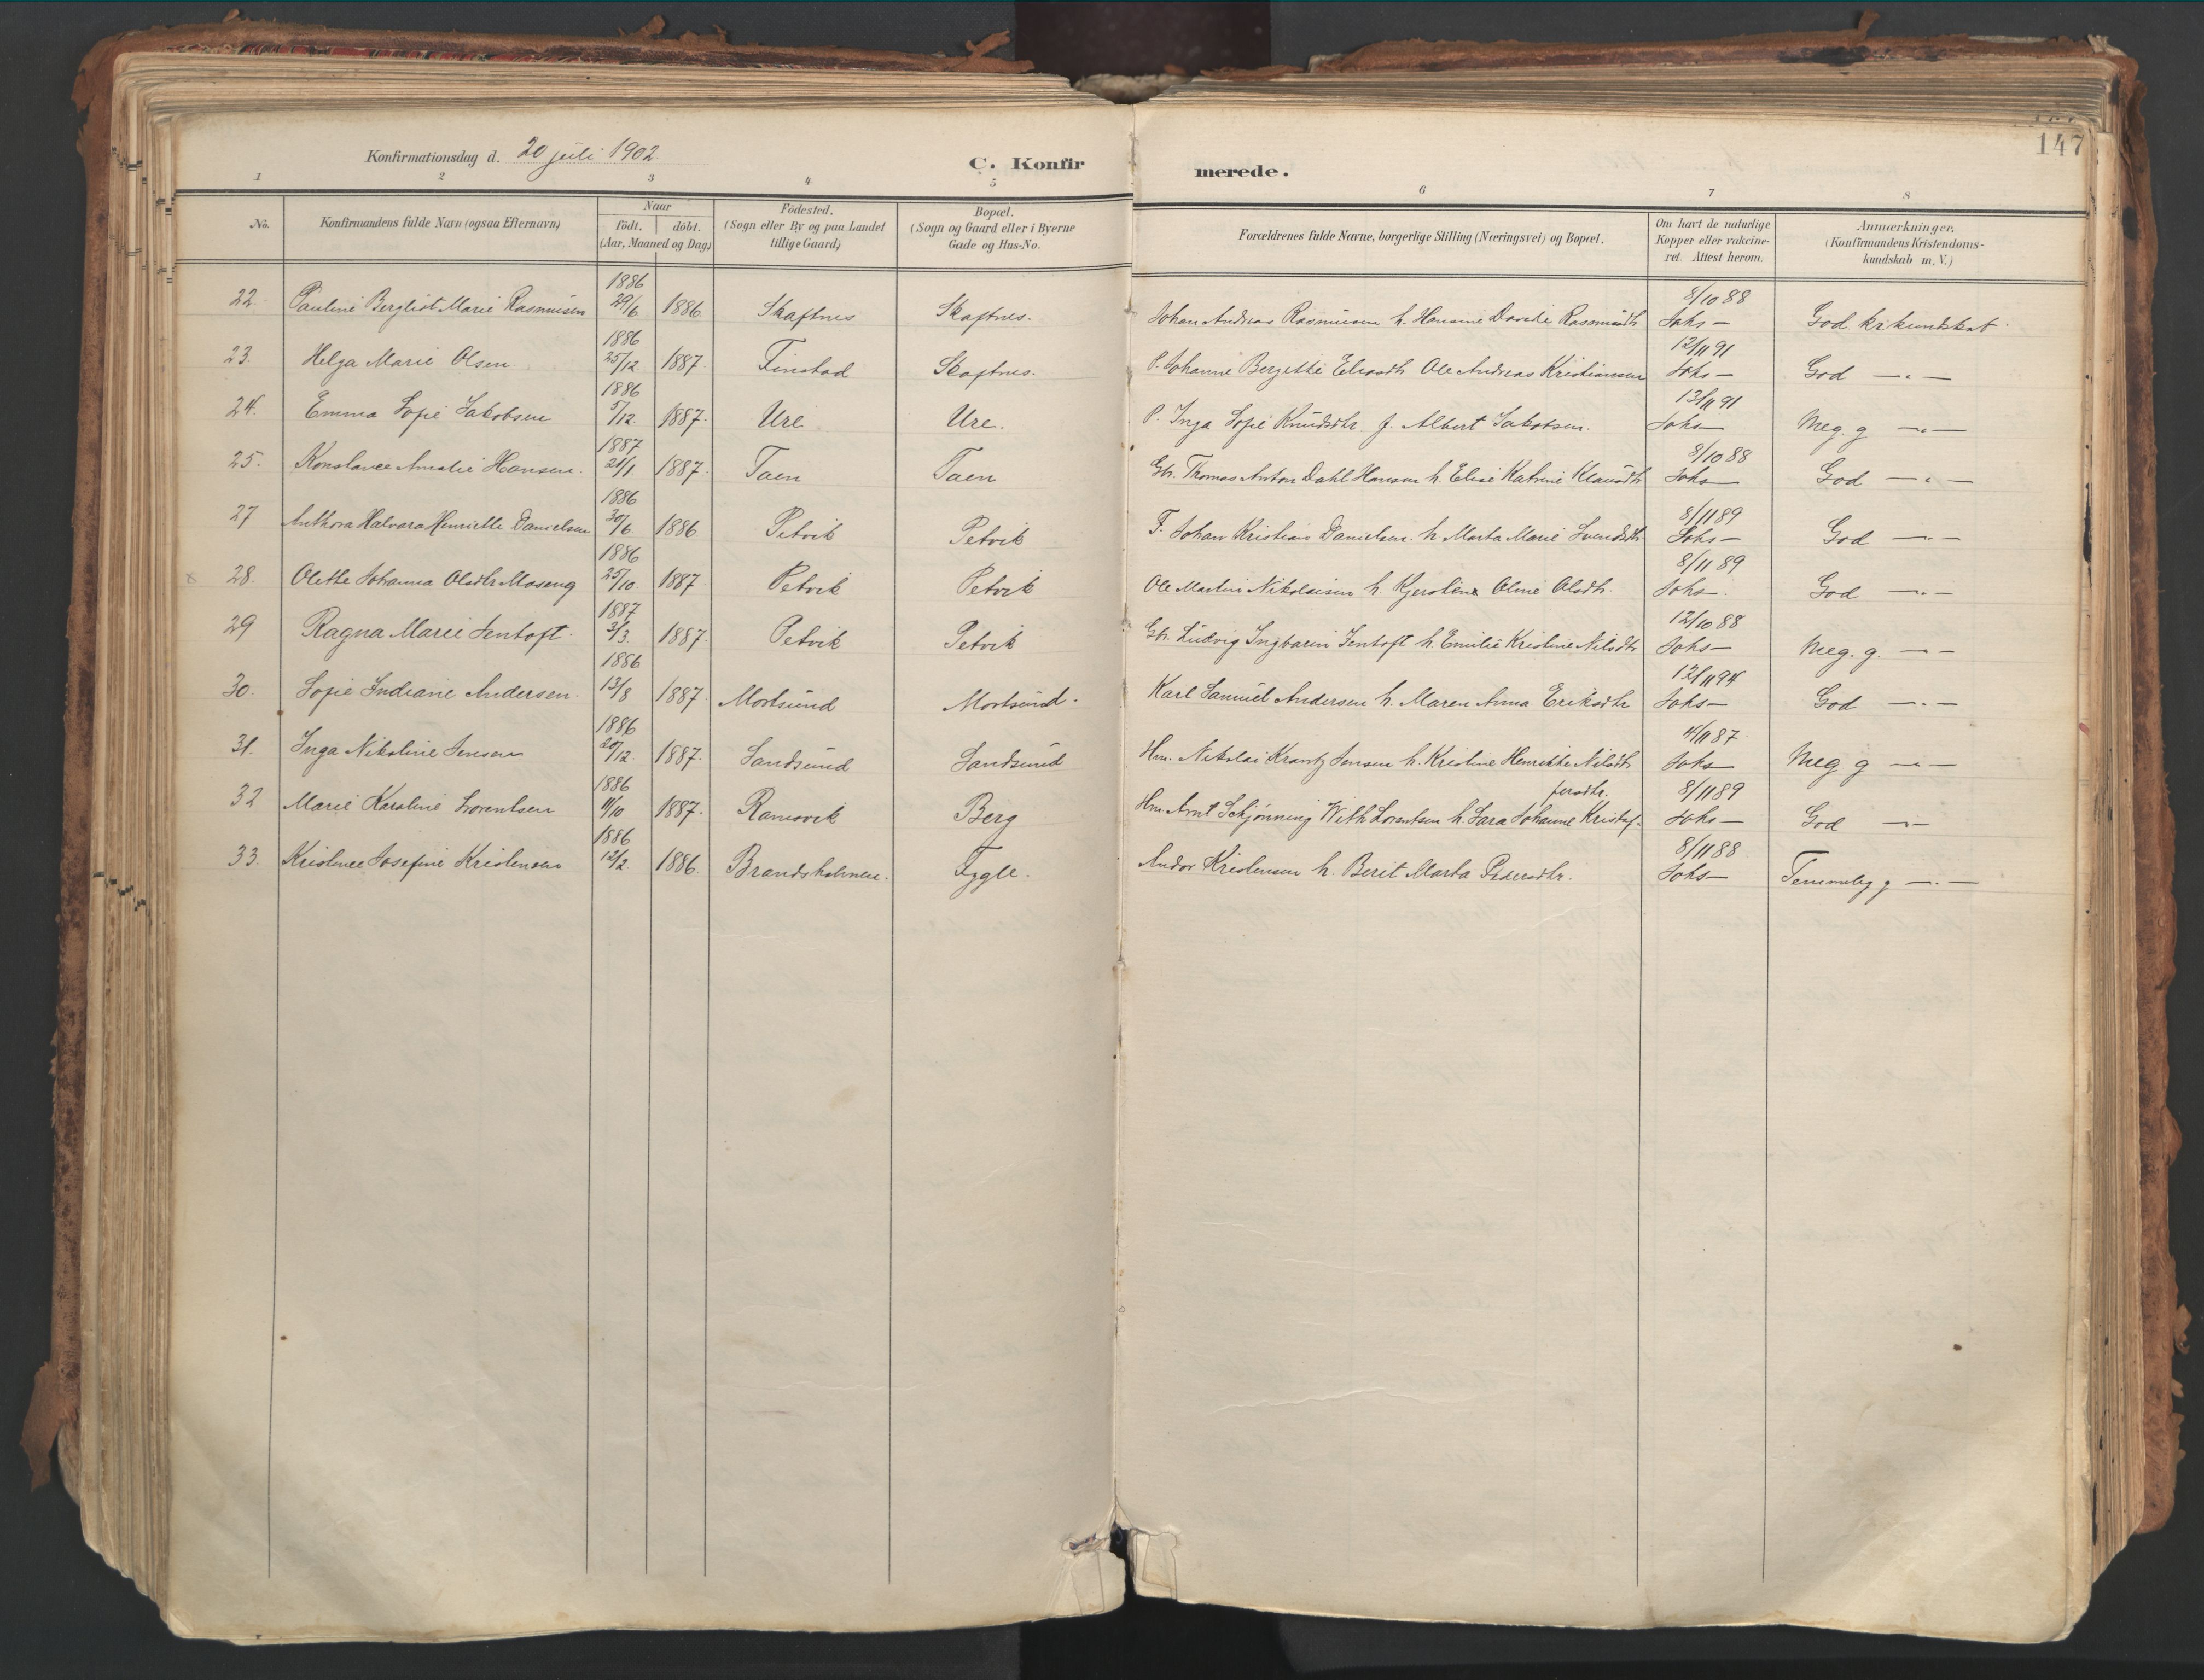 147
Konfirmationsdag d. 20 juli 1902.
C. Konfirmerede.
1 2 3 4 5 6 7 8
No. | Konfirmandens fulde Navn (ogsaa Efternavn) | Naar födt. | döbt. (Aar, Maaned og Dag) | Födested. (Sogn eller By og paa Landet tillige Gaard) | Bopæl. (Sogn og Gaard eller i Byerne Gade og Hus-No. | Forældrenes fulde Navne, borgerlige Stilling (Næringsvei) og Bopæl. | Om havt de naturlige Kopper eller vakcineret. Attest herom. | Anmærkninger. (Konfirmandens Kristendomskundskab m. V.)
22. Pauline Bergliot Marie Rasmusen 1886 29/6 1886 Skaftnes Skaftnes. Johan Andreas Rasmusen h. Hansine Davide Rasmusdtr 8/10 88 Johs — God kr. kundskab.
23. Helga Marie Olsen 1886 25/12 1887. Finstad Skaftnes. P. Johanne Bergitte Eliasdtr Ole Andreas Kristiansen 12/11 91 Johs — God —„—
24. Emma Sofie Jakobsen 1886 5/12. 1887. Ure Ure. P. Inga Sofie Knudsdtr. f. Albert Jakobsen. 13/11 91 Johs — Meg. g —„—
25. Konstance Amalie Hansen. 1887 21/1 1887. Taen Taen Gbr. Thomas Anton Dahl Hansen h. Elise Katrine Klausdtr 8/10 88 Johs — God —„—
27 Anthora Halvara Henriette Danielsen 1886 30/6. 1886. Petvik Petvik F. Johan Kristian Danielsen h. Marta Marie Svendsdtr. 8/11 89 Johs — God —„—
x 28. Olette Johanna Olsdtr Moseng 1886 25/10. 1887. Petvik Petvik Ole Martin Nikolaisen h Kjerstine Oline Olsdtr. 8/11 89 Johs. God —„—
29 Ragna Marie Jentoft. 1887 3/3. 1887. Petvik Petvik Gbr. Ludvig Ingbarin Jentoft h. Emilie Kristine Nilsdtr 12/10 88 Johs — Meg. g. —„—
30. Sofie Indiane Andersen. 1886 13/8 1887. Mortsund Mortsund. Karl Samuel Andersen h. Maren Anna Eriksdtr 12/11 94 Johs — God —„—
31. Inga Nikoline Jensen 1886 20/12. 1887. Sandsund Sandsund Hm. Nikolai Krantz Jensen h. Kristine Henrikke Nilsdtr 4/11 87 Johs — Meg g —„—
32 Marie Karoline Lorentsen 1886 11/10 1887. Ramsvik Berg Hm. Arnt Schjønning With Lorentsen h Sara Johanne Kristofersdtr. 8/11 89 Johs — God —„—
33. Kristense Josefine Kristensen 1886 12/2. 1886. Brandsholmen. Fygle. Andor Kristensen h. Berit Marta Pedersdtr. 8/11 88 Johs — Temmelig g —„—